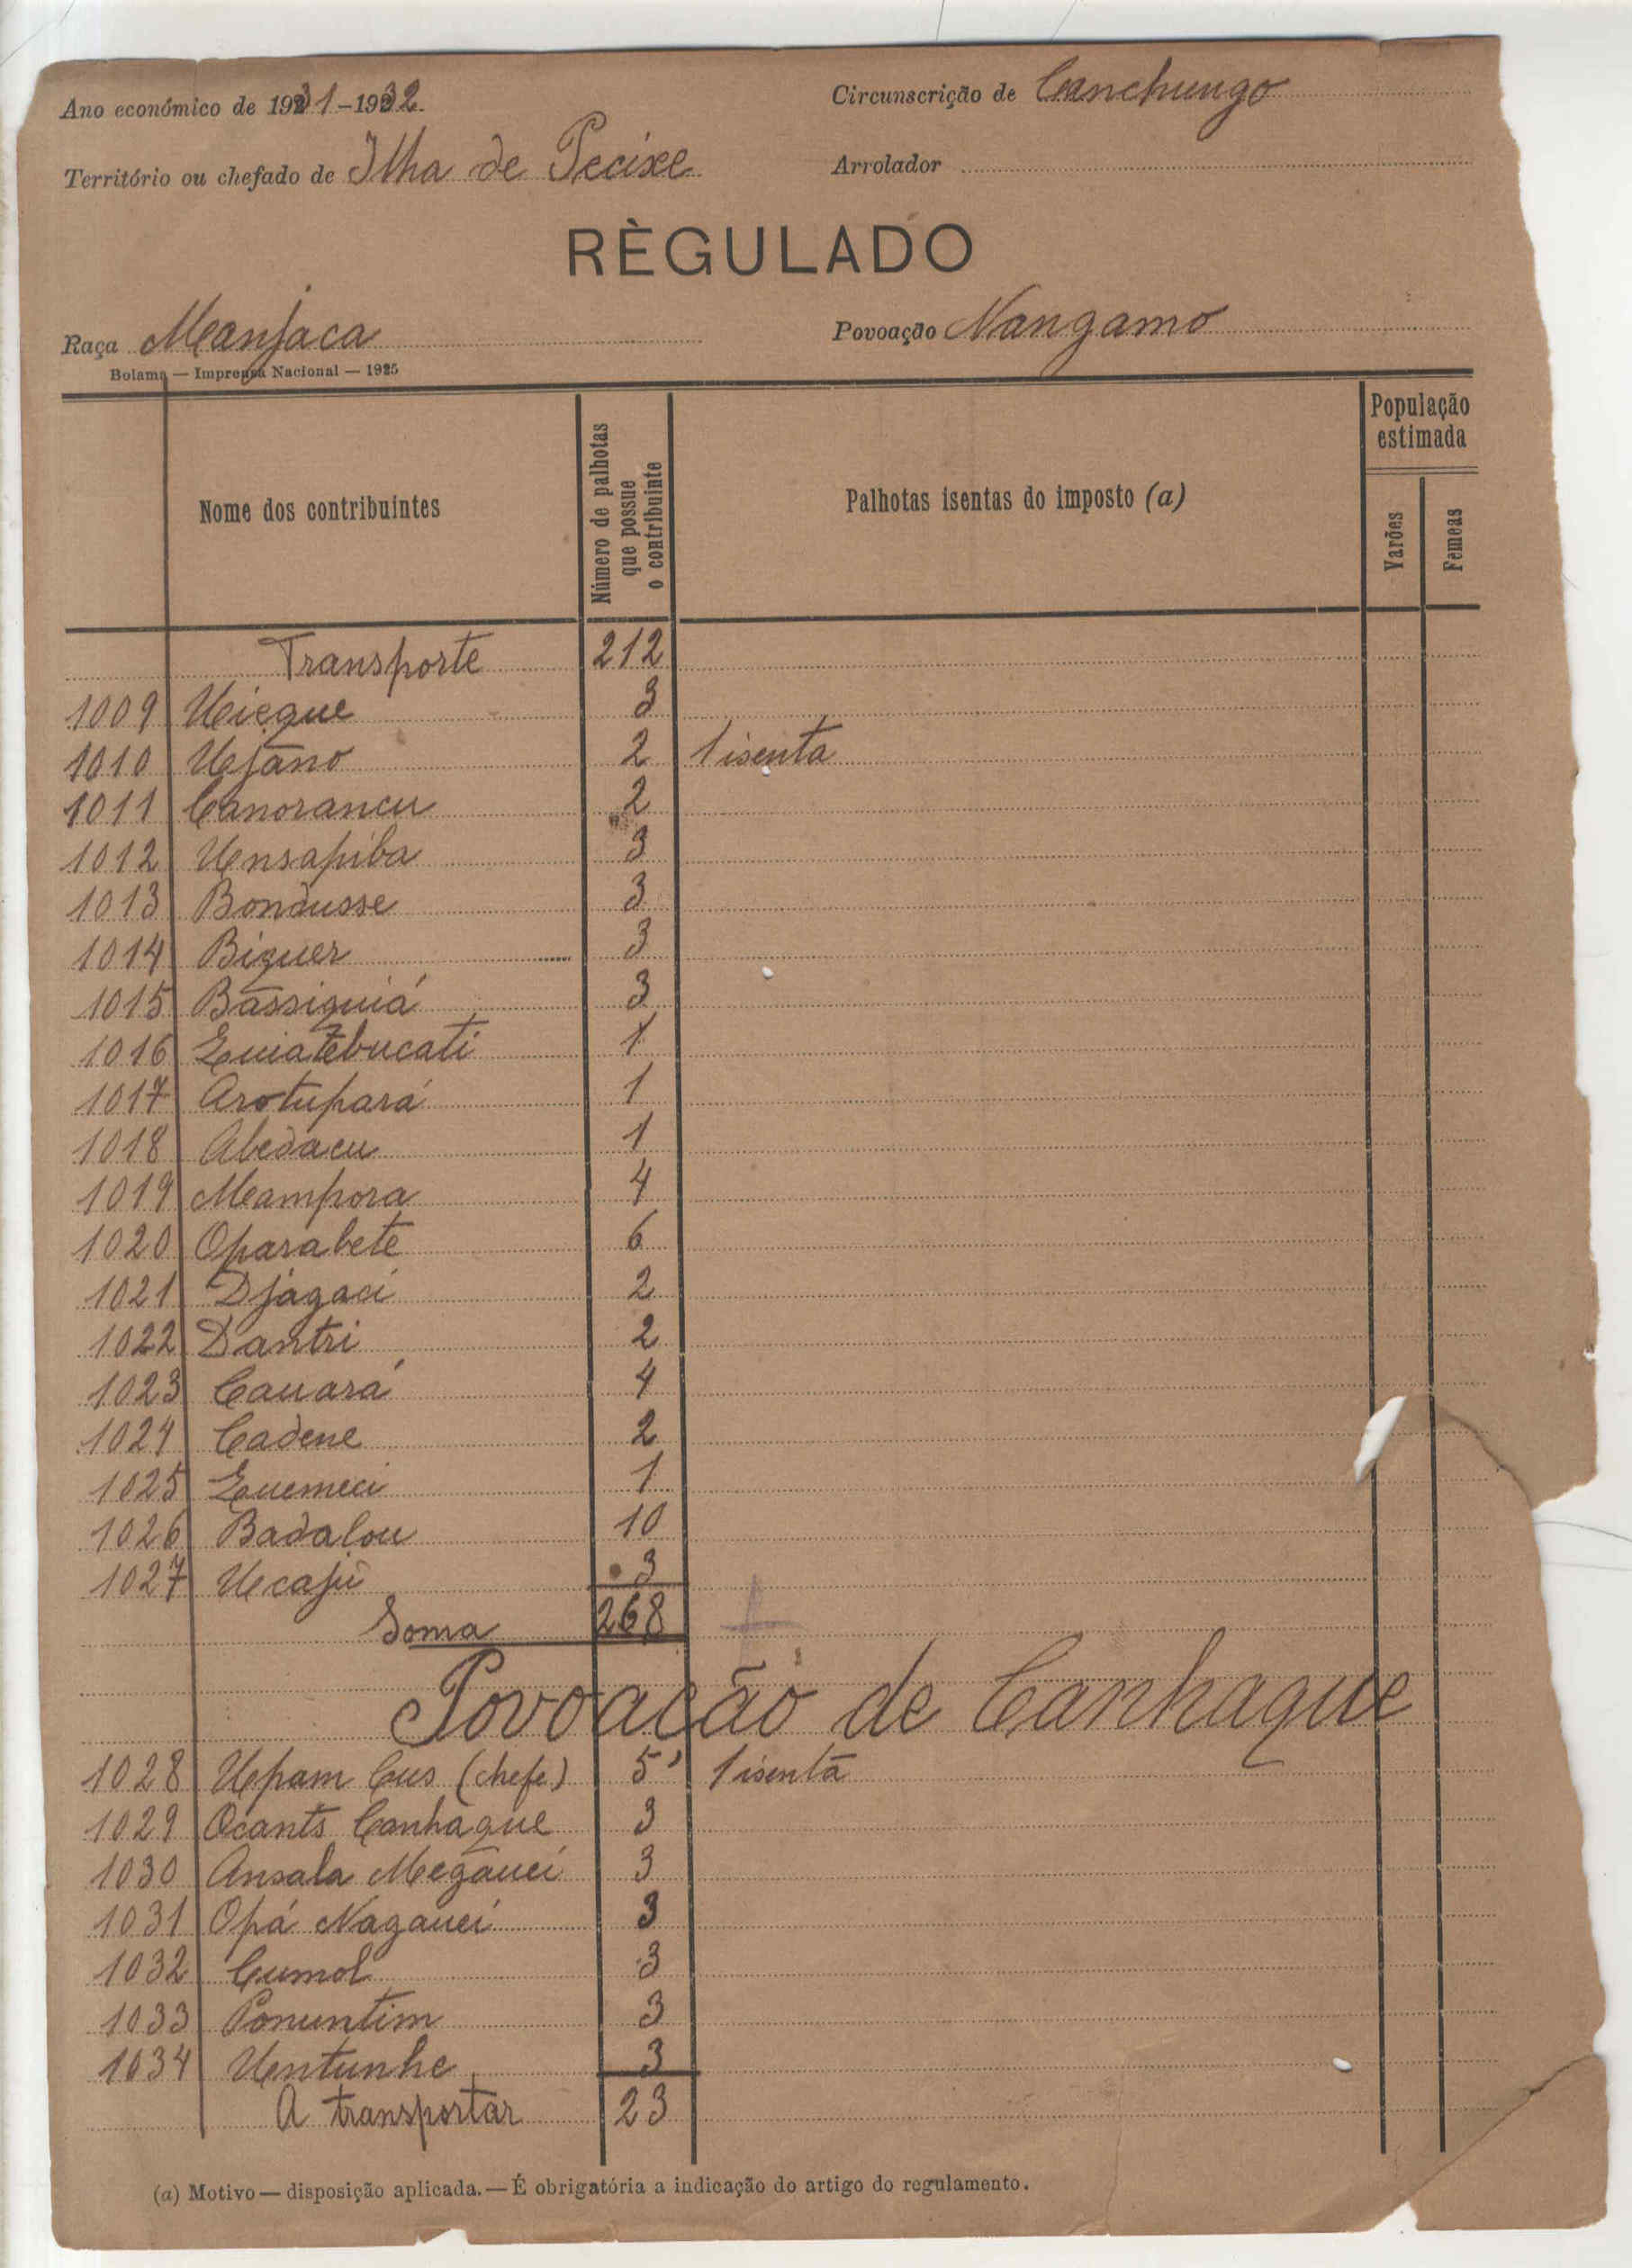 Ano económico de 1931-1932 Circunscrição de Canchungo
Território ou chefado de Ilha de Pecixe Arrolador
RÈGULADO
Raça Manjaca Povoação Nangamo
Bolama — Imprensa Nacional — 1925
Nome dos contribuintes
Número de palhotas que possue o contribuinte
Palhotas isentas do imposto (a)
População estimada
Varões
Fêmeas
Transporte 212
1009 Uieque 3
1010 Ujano 2 1 isenta
1011 Canorancu 2
1012 Unsapiba 3
1013 Bondusse 3
1014 Biquer 3
1015 Bassiquiá 3
1016 Quiatebucati 1
1017 Arotupará 1
1018 Abedacu 1
1019 Mampora 4
1020 Oparabete 6
1021 Djagaci 2
1022 Dantri 2
1023 Cauará 4
1024 Cadene 2
1025 Quemeci 1
1026 Badalou 10
1027 Ucajú 3
Soma 268
Povoação de Canhaque
1028 Upam Cus (chefe) 5 1 isenta
1029 Ocants Canhaque 3
1030 Ansala Megauei 3
1031 Opá Nagauei 3
1032 Cumol 3
1033 Ponuntim 3
1034 Untunhe 3
A transportar 23
(a) Motivo — disposição aplicada. — É obrigatória a indicação do artigo do regulamento.